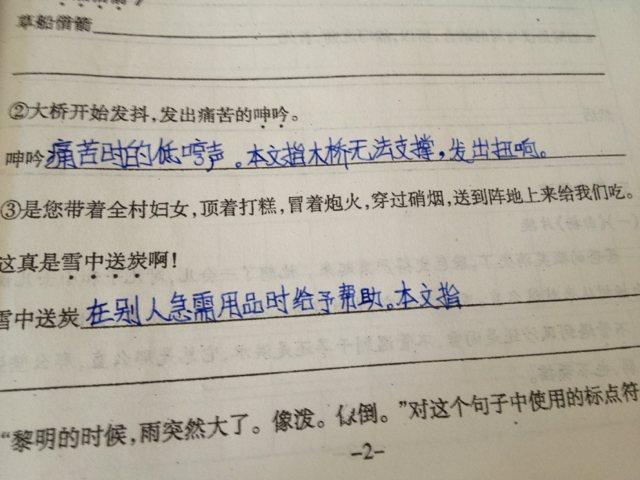 草船借箭
②大桥开始发抖,发出痛苦的呻吟。
呻吟 痛苦时的低哼声。本文指木桥无法支撑,发出扭响。
③是您带着全村妇女,顶着打糕,冒着炮火,穿过硝烟,送到阵地上来给我们吃。
这真是雪中送炭啊!
雪中送炭 在别人急需用品时给予帮助。本文指
“黎明的时候,雨突然大了。像泼。似倒。”对这个句子中使用的标点符
-2-